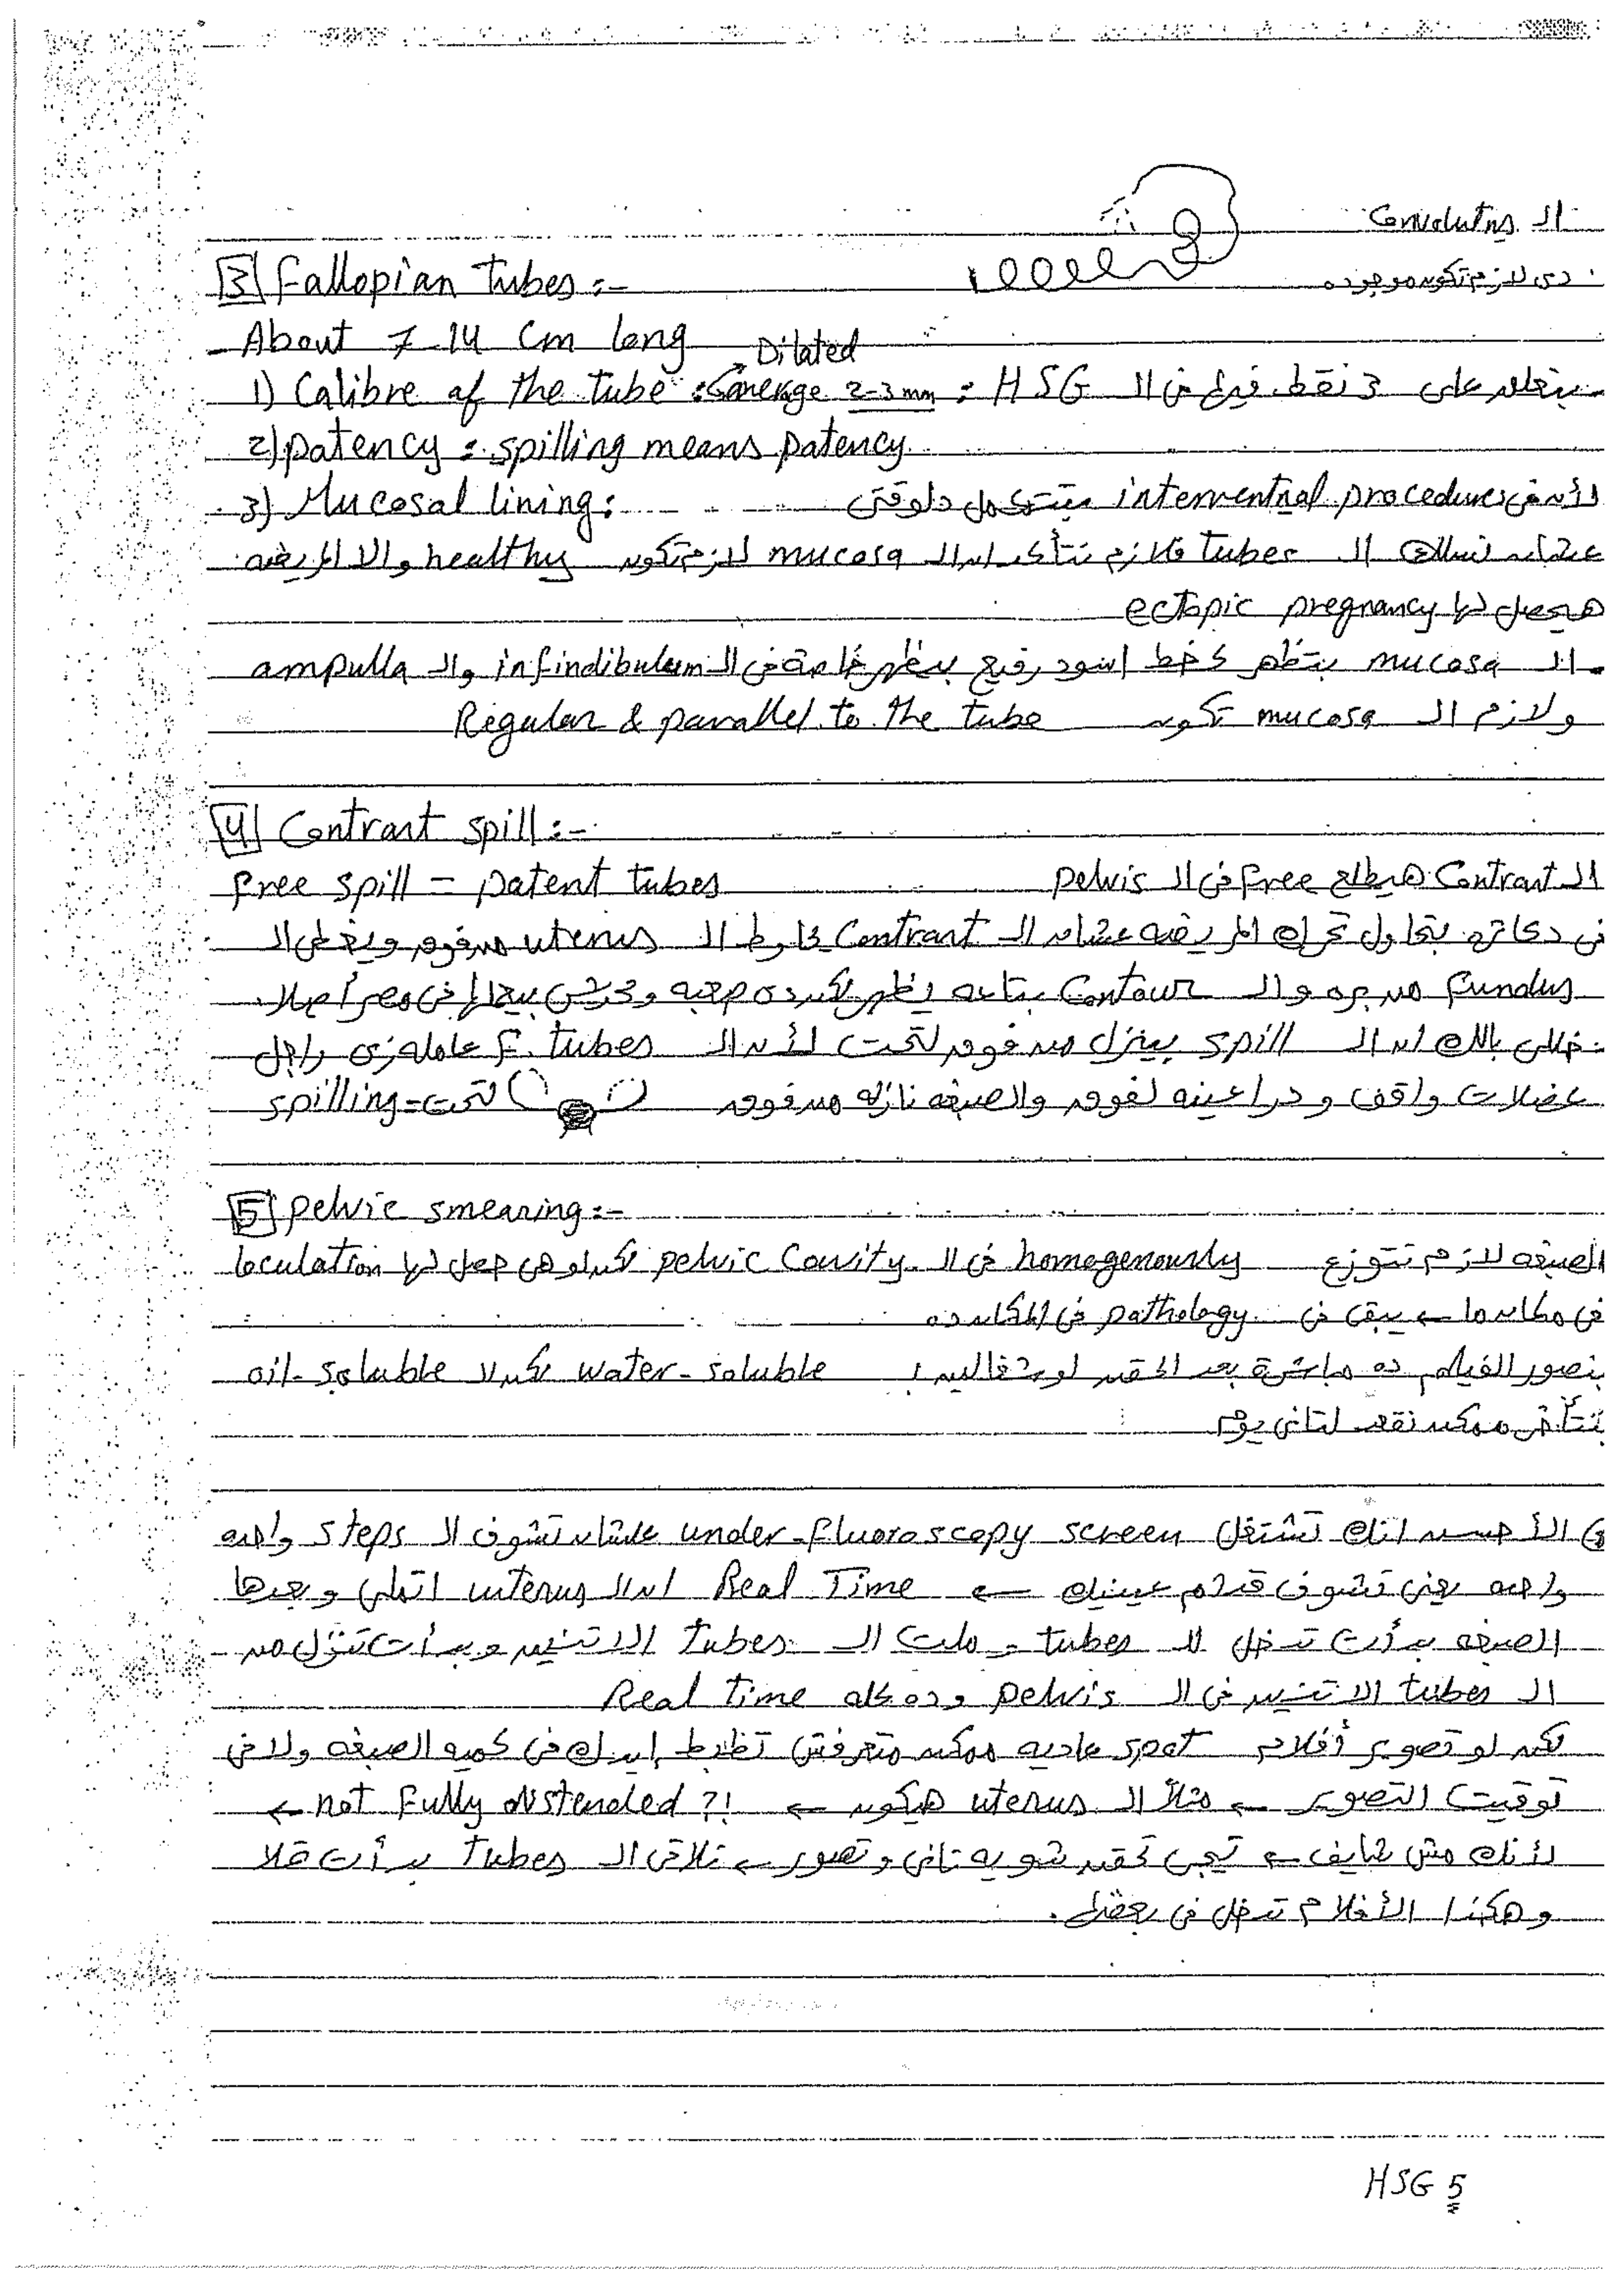 ال Convolutions
دى لازم تكون موجوده
3 Fallopian tubes :-
About 7-14 Cm long
Dilated
1) Calibre of the tube : 2-3 mm = HSG بنعلق على 3 نقط فيها فى ال
2) patency : spilling means patency
3) Mucosal lining : لأن فى interventional procedures بتتعمل دلوقتى
عشان نسلك ال tubes فلازم نتأكد ان ال mucosa لازم تكون healthy والا المريضه
هيحصل لها ectopic pregnancy
- ال mucosa بتظهر كخط اسود رفيع بيظهر خاصة فى ال infindibulum وال ampulla
ولازم ال mucosa تكون Regular & parallel to the tube
4 Contrast spill :-
free spill = patent tubes ال Contrast هيطلع free فى ال pelvis
فى دكاتره بتحاول تحرك المريضه عشان ال Contrast يحاوط ال uterus من فوق ويغطى ال
fundus من بره وال Contour بتاعه يظهر لكن ده صعبه ومحدش بيعملها فى مصر أصلا.
خلى بالك ان ال spill بينزل من فوق لتحت لأن ال F. tubes عامله زى راجل
عضلات واقف ودراعينه لفوق والصبغه نازله من فوق لتحت = spilling
5 pelvic smearing :-
الصبغه لازم تتوزع homogenously فى ال pelvic Cavity لكن لو هى حصل لها loculation
فى مكان ما ← يبقى فى pathology فى المكان ده
بنصور الفيلم ده مباشرة بعد الحقن لو شغالين ب water-soluble لكن لا oil-soluble
نتأخر ممكن نقعد لتانى يوم
الأحسن انك تشتغل under-fluoroscopy screen علشان تشوف ال steps واحده
واحده يعنى تشوف قدام عينيك ← Real Time ان ال uterus اتملى وبعدها
الصبغه بدأت تدخل لل tubes وملت ال tubes الاتنين وبدأت تنزل من
ال tubes الاتنين فى ال pelvis وده كله Real Time
لكن لو تصوير أفلام spot عاديه ممكن متعرفش تظبط إيدك فى كميه الصبغه ولا فى
توقيت التصوير ← مثلاً ال uterus هيكون ← !? not Fully distended ←
لأنك مش شايف ← تيجى تحقن شويه تانى وتصور ← تلاقى ال Tubes بدأت تملا
وهكذا الأفلام تدخل فى بعضها.
HSG 5